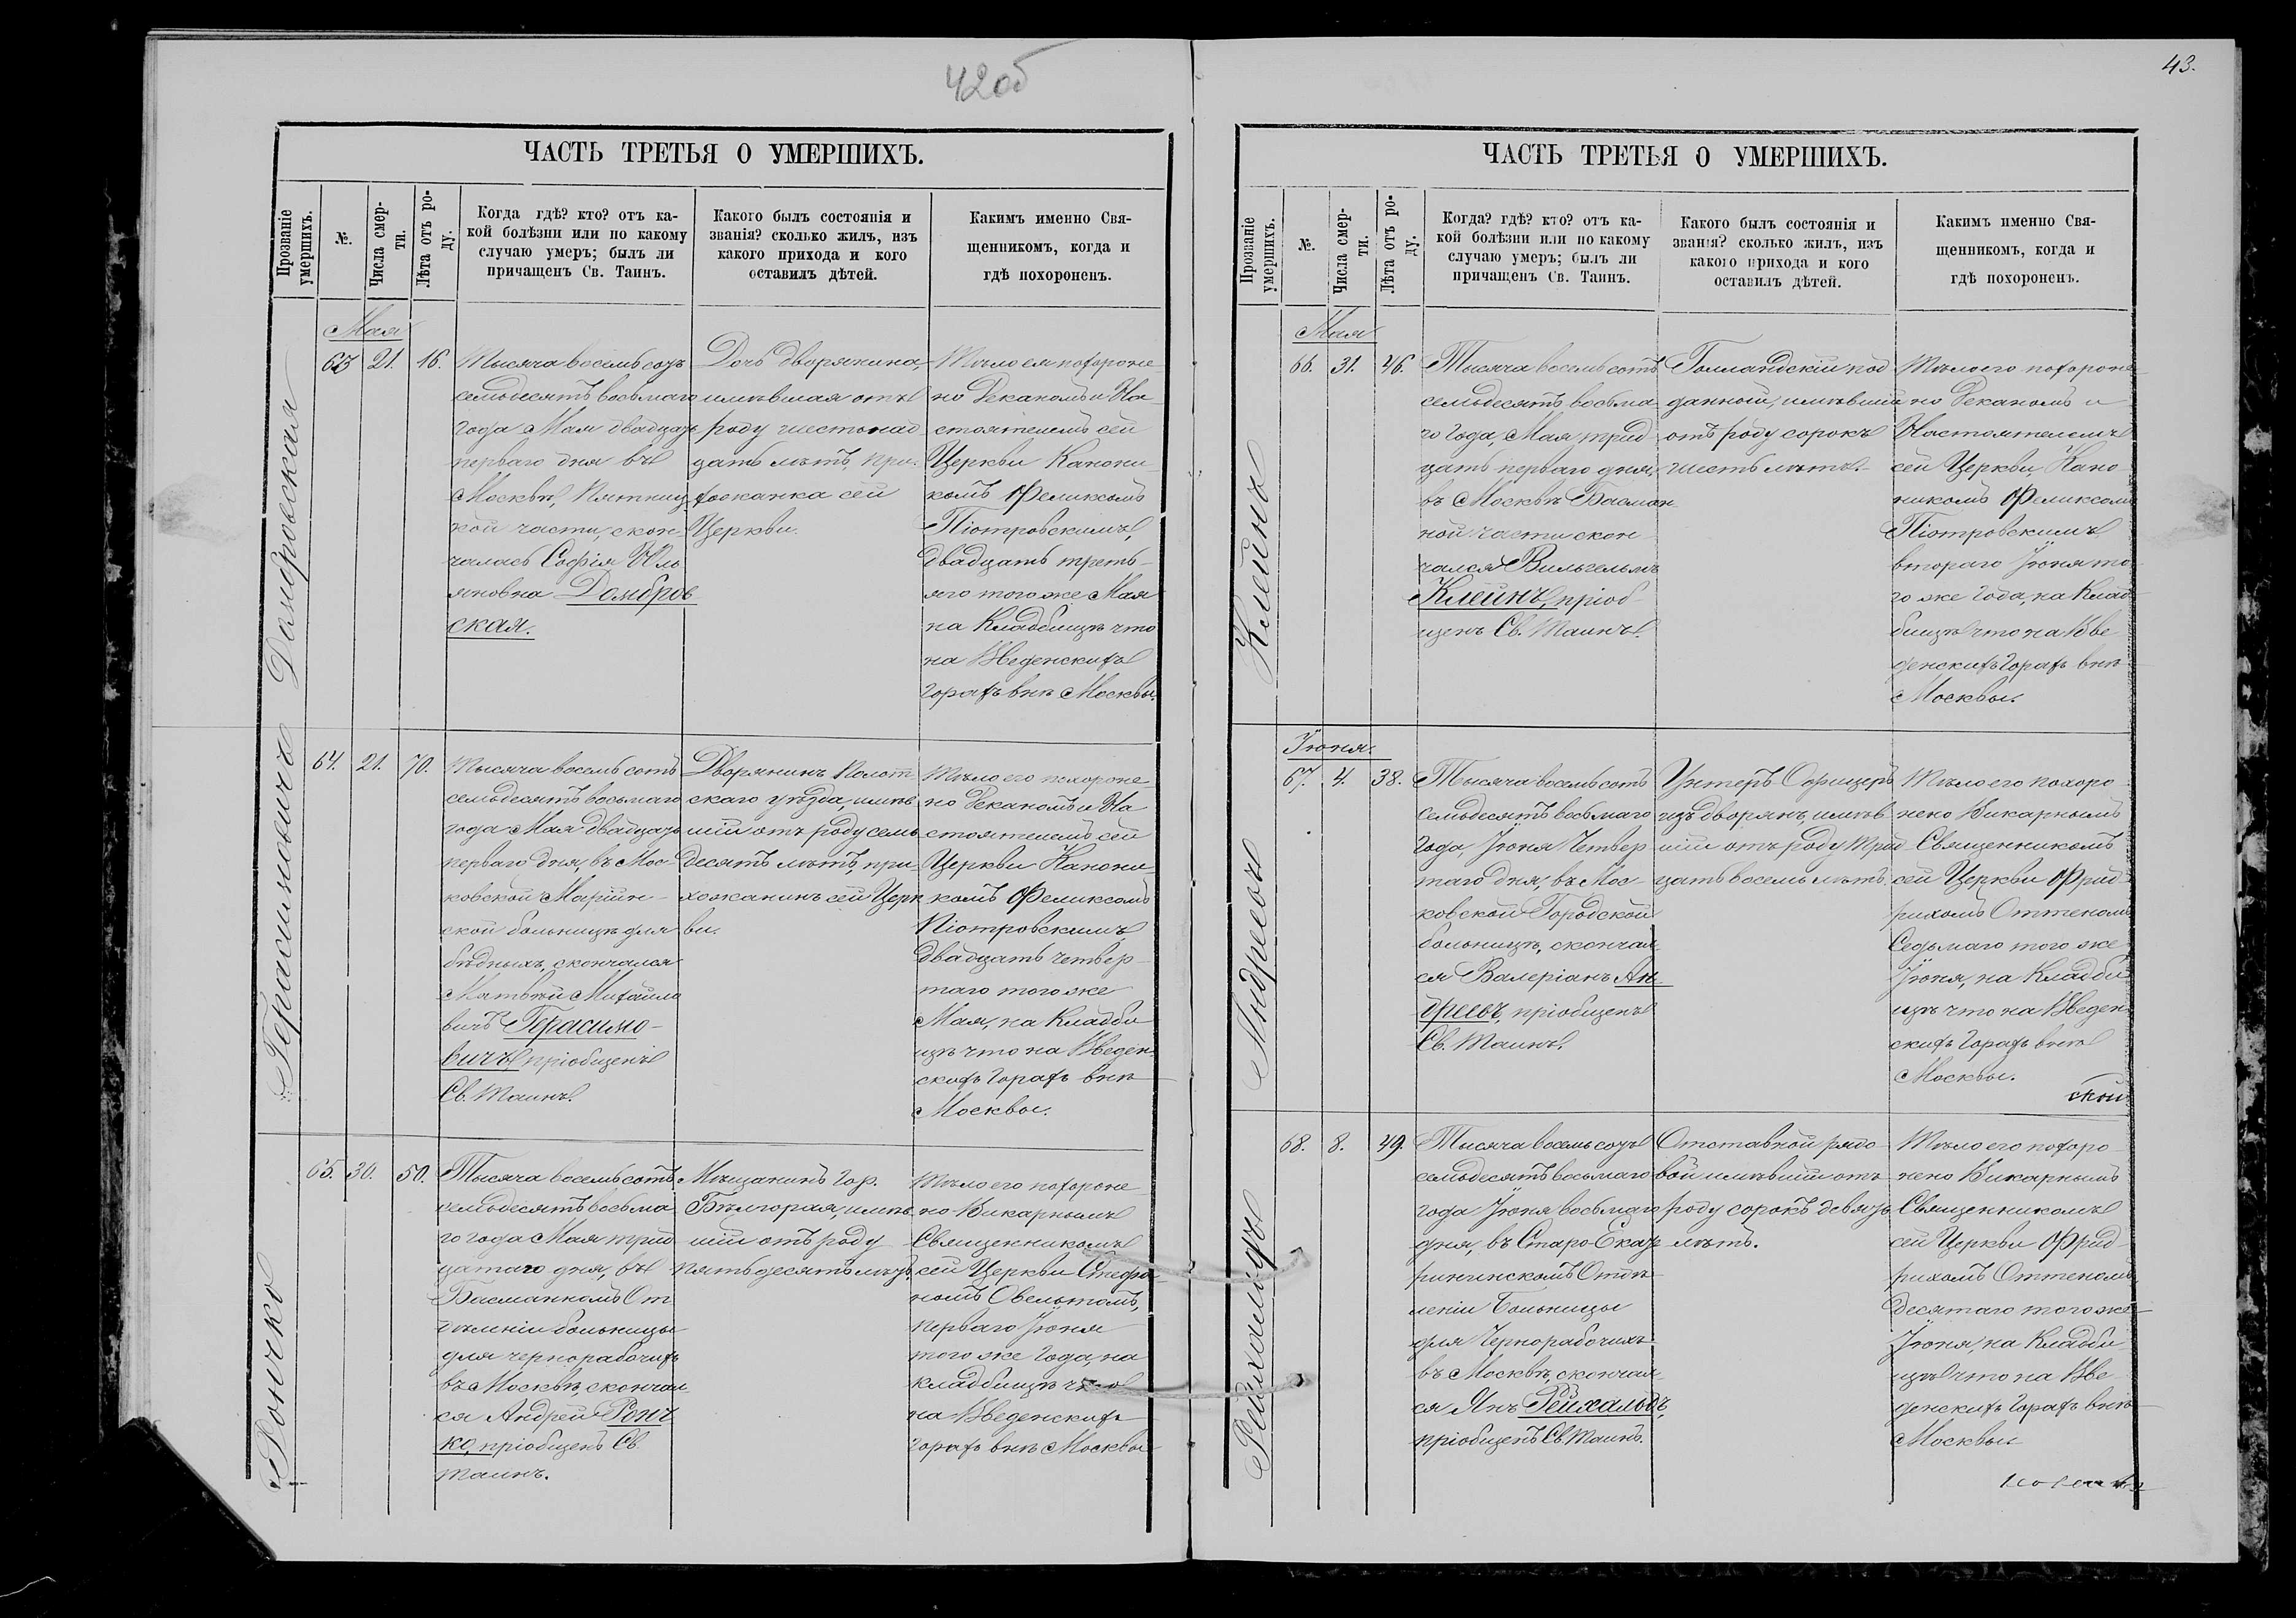 42об
ЧАСТЬ ТРЕТЬЯ О УМЕРШИХЪ.
Прозваніе умершихъ.
№.
Числа смер-
ти.
Лѣта отъ ро-
ду.
Когда гдѣ? кто? отъ ка-
кой болѣзни или по какому
случаю умеръ; былъ ли
причащенъ Св. Таинъ.
Какого былъ состоянія и
званія? сколько жилъ, изъ
какого прихода и кого
оставилъ дѣтей.
Какимъ именно Свя-
щенникомъ, когда и
гдѣ похороненъ.
Домбровская
Мая
63
21.
16.
Тысяча восемьсотъ
семьдесятъ восьмаго
года Мая двадцать
перваго дня въ
Москвѣ, Пятниц
кой части, скон-
чалась Софія Юль
яновна Домбров
ская.
Дочь дворянина,
имѣвшая отъ
роду шестьнад
цать лѣтъ, при-
хожанка сей
Церкви.
Тѣло ея похороне
но Деканомъ и На
стоятелемъ сей
Церкви Канони
комъ Феликсомъ
Піотровскимъ,
двадцать треть-
яго того же Мая
на Кладбищѣ что
на Введенскихъ
горахъ внѣ Москвы.
Герасимовичъ
64.
21.
70.
Тысяча восемьсотъ
семьдесятъ восьмаго
года Мая двадцать
перваго дня, въ Мос-
ковской Маріин-
ской больницѣ для
бѣдныхъ, скончался
Матвѣй Михайло
вичъ Герасимо-
вичъ пріобщенъ
Св. Таинъ.
Дворянинъ Полот-
скаго уѣзда, имѣв
шій отъ роду семь
десятъ лѣтъ, при-
хожанинъ сей Церк
ви.
Тѣло его похороне
но Деканомъ и На
стоятелемъ сей
Церкви Канони
комъ Феликсомъ
Піотровскимъ,
двадцать четвер-
таго того же
Мая, на Кладби
щѣ что на Введен-
скихъ горахъ внѣ
Москвы.
Рончко
65.
30.
50.
Тысяча восемьсотъ
семьдесятъ восьма
го года Мая трид
цатаго дня, въ
Басманномъ От
дѣленіи больницы
для чернорабочихъ
въ Москвѣ, скончал
ся Андрей Ронч
ко, пріобщенъ Св.
Таинъ.
Мѣщанинъ гор.
Бѣлгорая, имѣв
шій отъ роду
пятьдесятъ лѣтъ.
Тѣло его похороне
но Викарнымъ
Священникомъ
сей Церкви Стефа
номъ Овельтомъ,
перваго Іюня
того же года, на
кладбищѣ что
на Введенскихъ
горахъ внѣ Москвы
43.
ЧАСТЬ ТРЕТЬЯ О УМЕРШИХЪ.
Прозваніе умершихъ.
№.
Числа смер-
ти.
Лѣта отъ ро-
ду.
Когда? гдѣ? кто? отъ ка-
кой болѣзни или по какому
случаю умеръ; былъ ли
причащенъ Св. Таинъ.
Какого былъ состоянія и
званія? сколько жилъ, изъ
какого прихода и кого
оставилъ дѣтей.
Какимъ именно Свя-
щенникомъ, когда и
гдѣ похороненъ.
Клейнъ
Мая
66.
31.
46.
Тысяча восемьсотъ
семьдесятъ восьма-
го года, Мая трид
цать перваго дня,
въ Москвѣ Басман
ной части скон
чался Вильгельмъ
Клейнъ, пріоб-
щенъ Св. Таинъ.
Голландскій под
данной, имѣвшій
отъ роду сорокъ
шесть лѣтъ.
Тѣло его похороне
но Деканомъ и
Настоятелемъ
сей Церкви Кано
никомъ Феликсомъ
Піотровскимъ
втораго Іюня то
го же года, на Клад
бищѣ что на Вве
денскихъ горахъ внѣ
Москвы.
Андреевъ
Іюня.
67.
4.
38.
Тысяча восемьсотъ
семьдесятъ восьмаго
года, Іюня Четвер
таго дня, въ Мос-
ковской Городской
больницѣ, скончал
ся Валеріанъ Ан
дреевъ, пріобщенъ
Св. Таинъ.
Унтеръ Офицеръ
изъ дворянъ, имѣв
шій отъ роду трид
цать восемь лѣтъ.
Тѣло его похоро
нено Викарнымъ
Священникомъ
сей Церкви Фрид
рихомъ Оттеномъ
Седьмаго того же
Іюня, на Кладби
щѣ что на Введен
скихъ горахъ внѣ
Москвы.
Рейхальдъ
68.
8.
49.
Тысяча восемьсотъ
семьдесятъ восьмаго
года Іюня восьмаго
дня, въ Старо-Екате
рининскомъ Отдѣ
леніи Больницы
для Чернорабочихъ
въ Москвѣ, скончал
ся Янъ Рейхальдъ,
пріобщенъ Св. Таинъ.
Отставной рядо
вой имѣвшій отъ
роду сорокъ девять
лѣтъ.
Тѣло его похоро
нено Викарнымъ
Священникомъ
сей Церкви Фрид
рихомъ Оттеномъ,
десятаго того же
Іюня, на Кладби
щѣ что на Вве
денскихъ горахъ внѣ
Москвы.